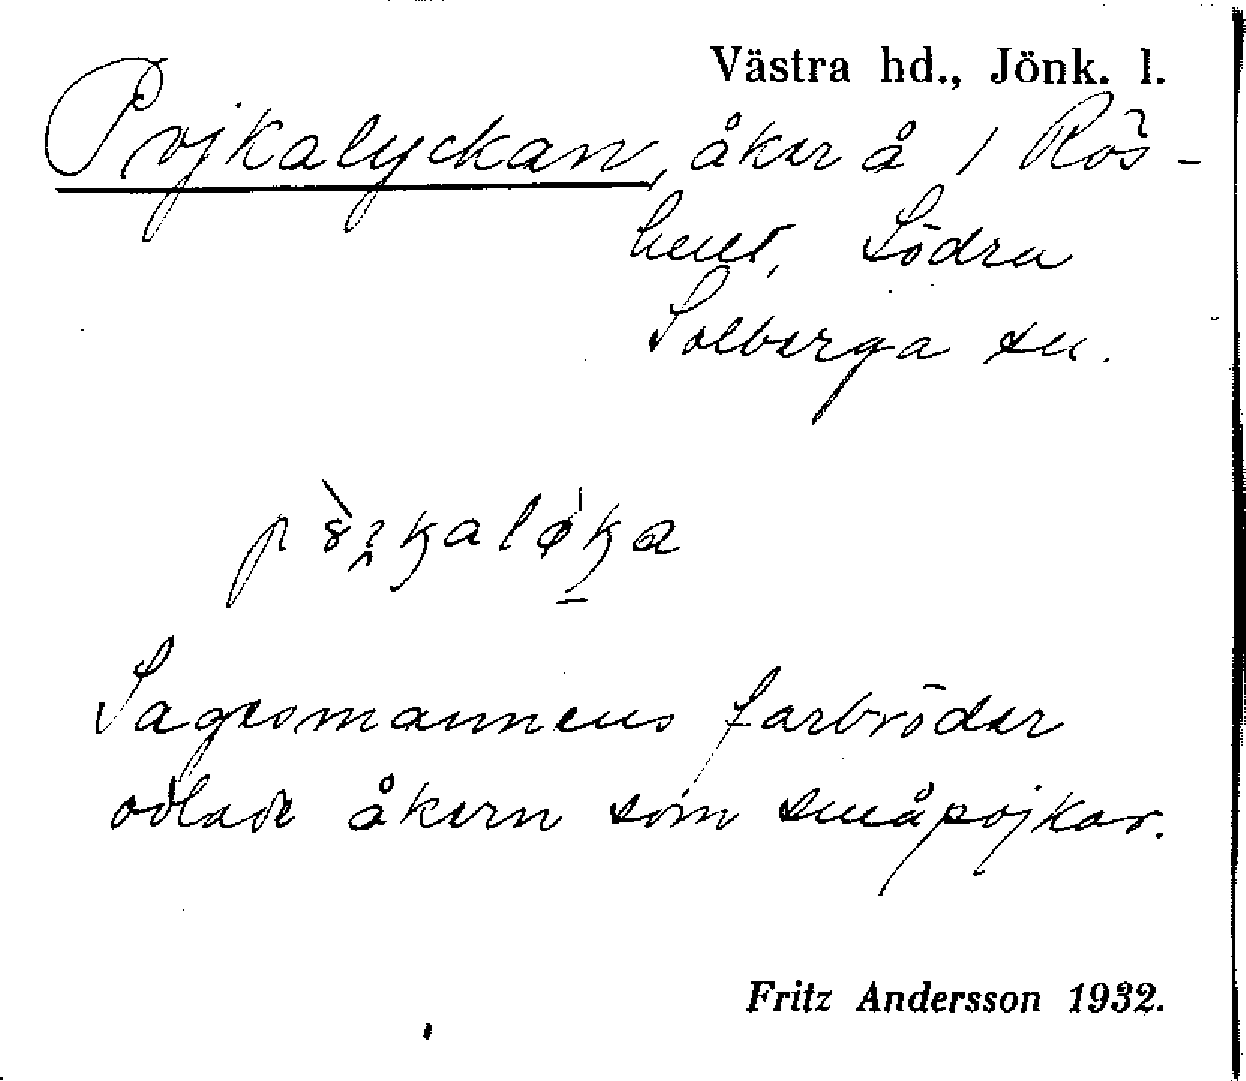 Västra hd., Jönk. l.
Pojkalyckan, åker å 1 Rös-
hult, Södra
Solberga sn.
Sagesmannens farbröder
odlade åkern som småpojkar.
Fritz Andersson 1932.